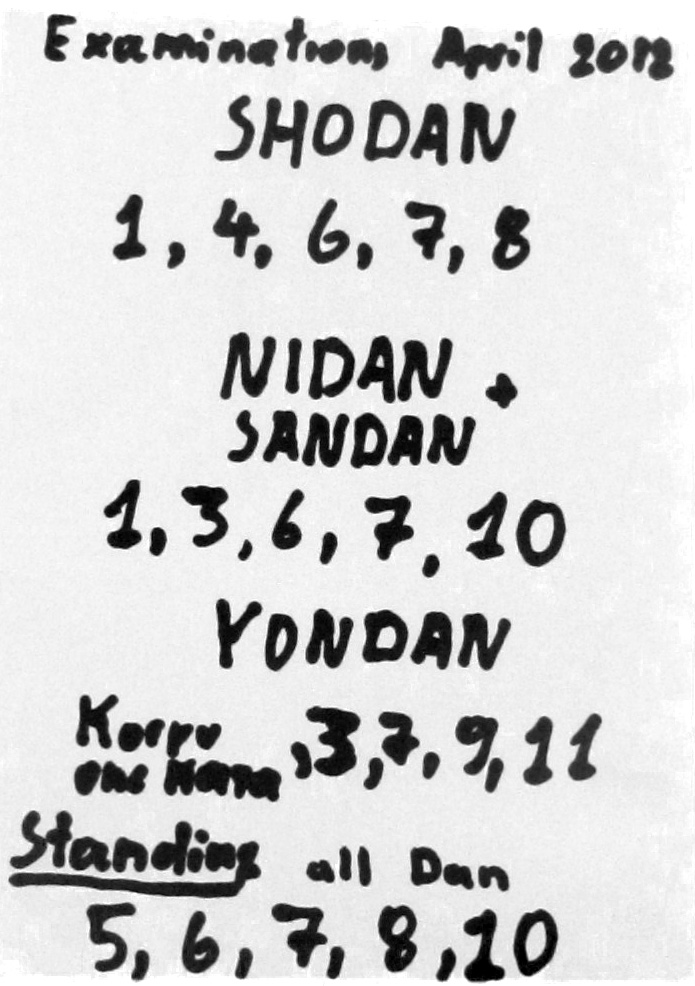 Examination, April 2012
SHODAN
1, 4, 6, 7, 8
NIDAN +
SANDAN
1, 3, 6, 7, 10
YONDAN
,3,7,9,11
Standing all Dan
5, 6, 7, 8, 10